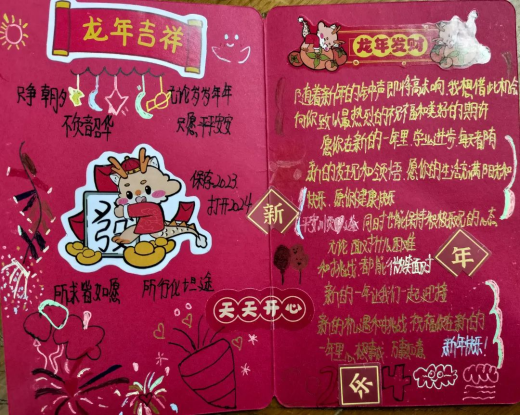 龙年吉祥
只争朝夕
不负韶华
无论岁岁年年
只愿平安
保存2023
打开2024
所求皆如愿
所行化坦途
天天开心
龙年发财
随着新年的钟声即将高响,我想借此机会
向你致以最热烈的祝福和美好的期许
愿你在新的一年里,学业进步,每天都有
新的发现和领悟,愿你的生活充满阳光和
快乐,愿你健康快乐
同时也能保持积极乐观的心态
无论面对什么困难
和挑战都能微笑面对
新的一年让我们一起迎接
新的机遇和挑战,祝福你在新的
一年里,万事如意
新年快乐!
新
年
乐